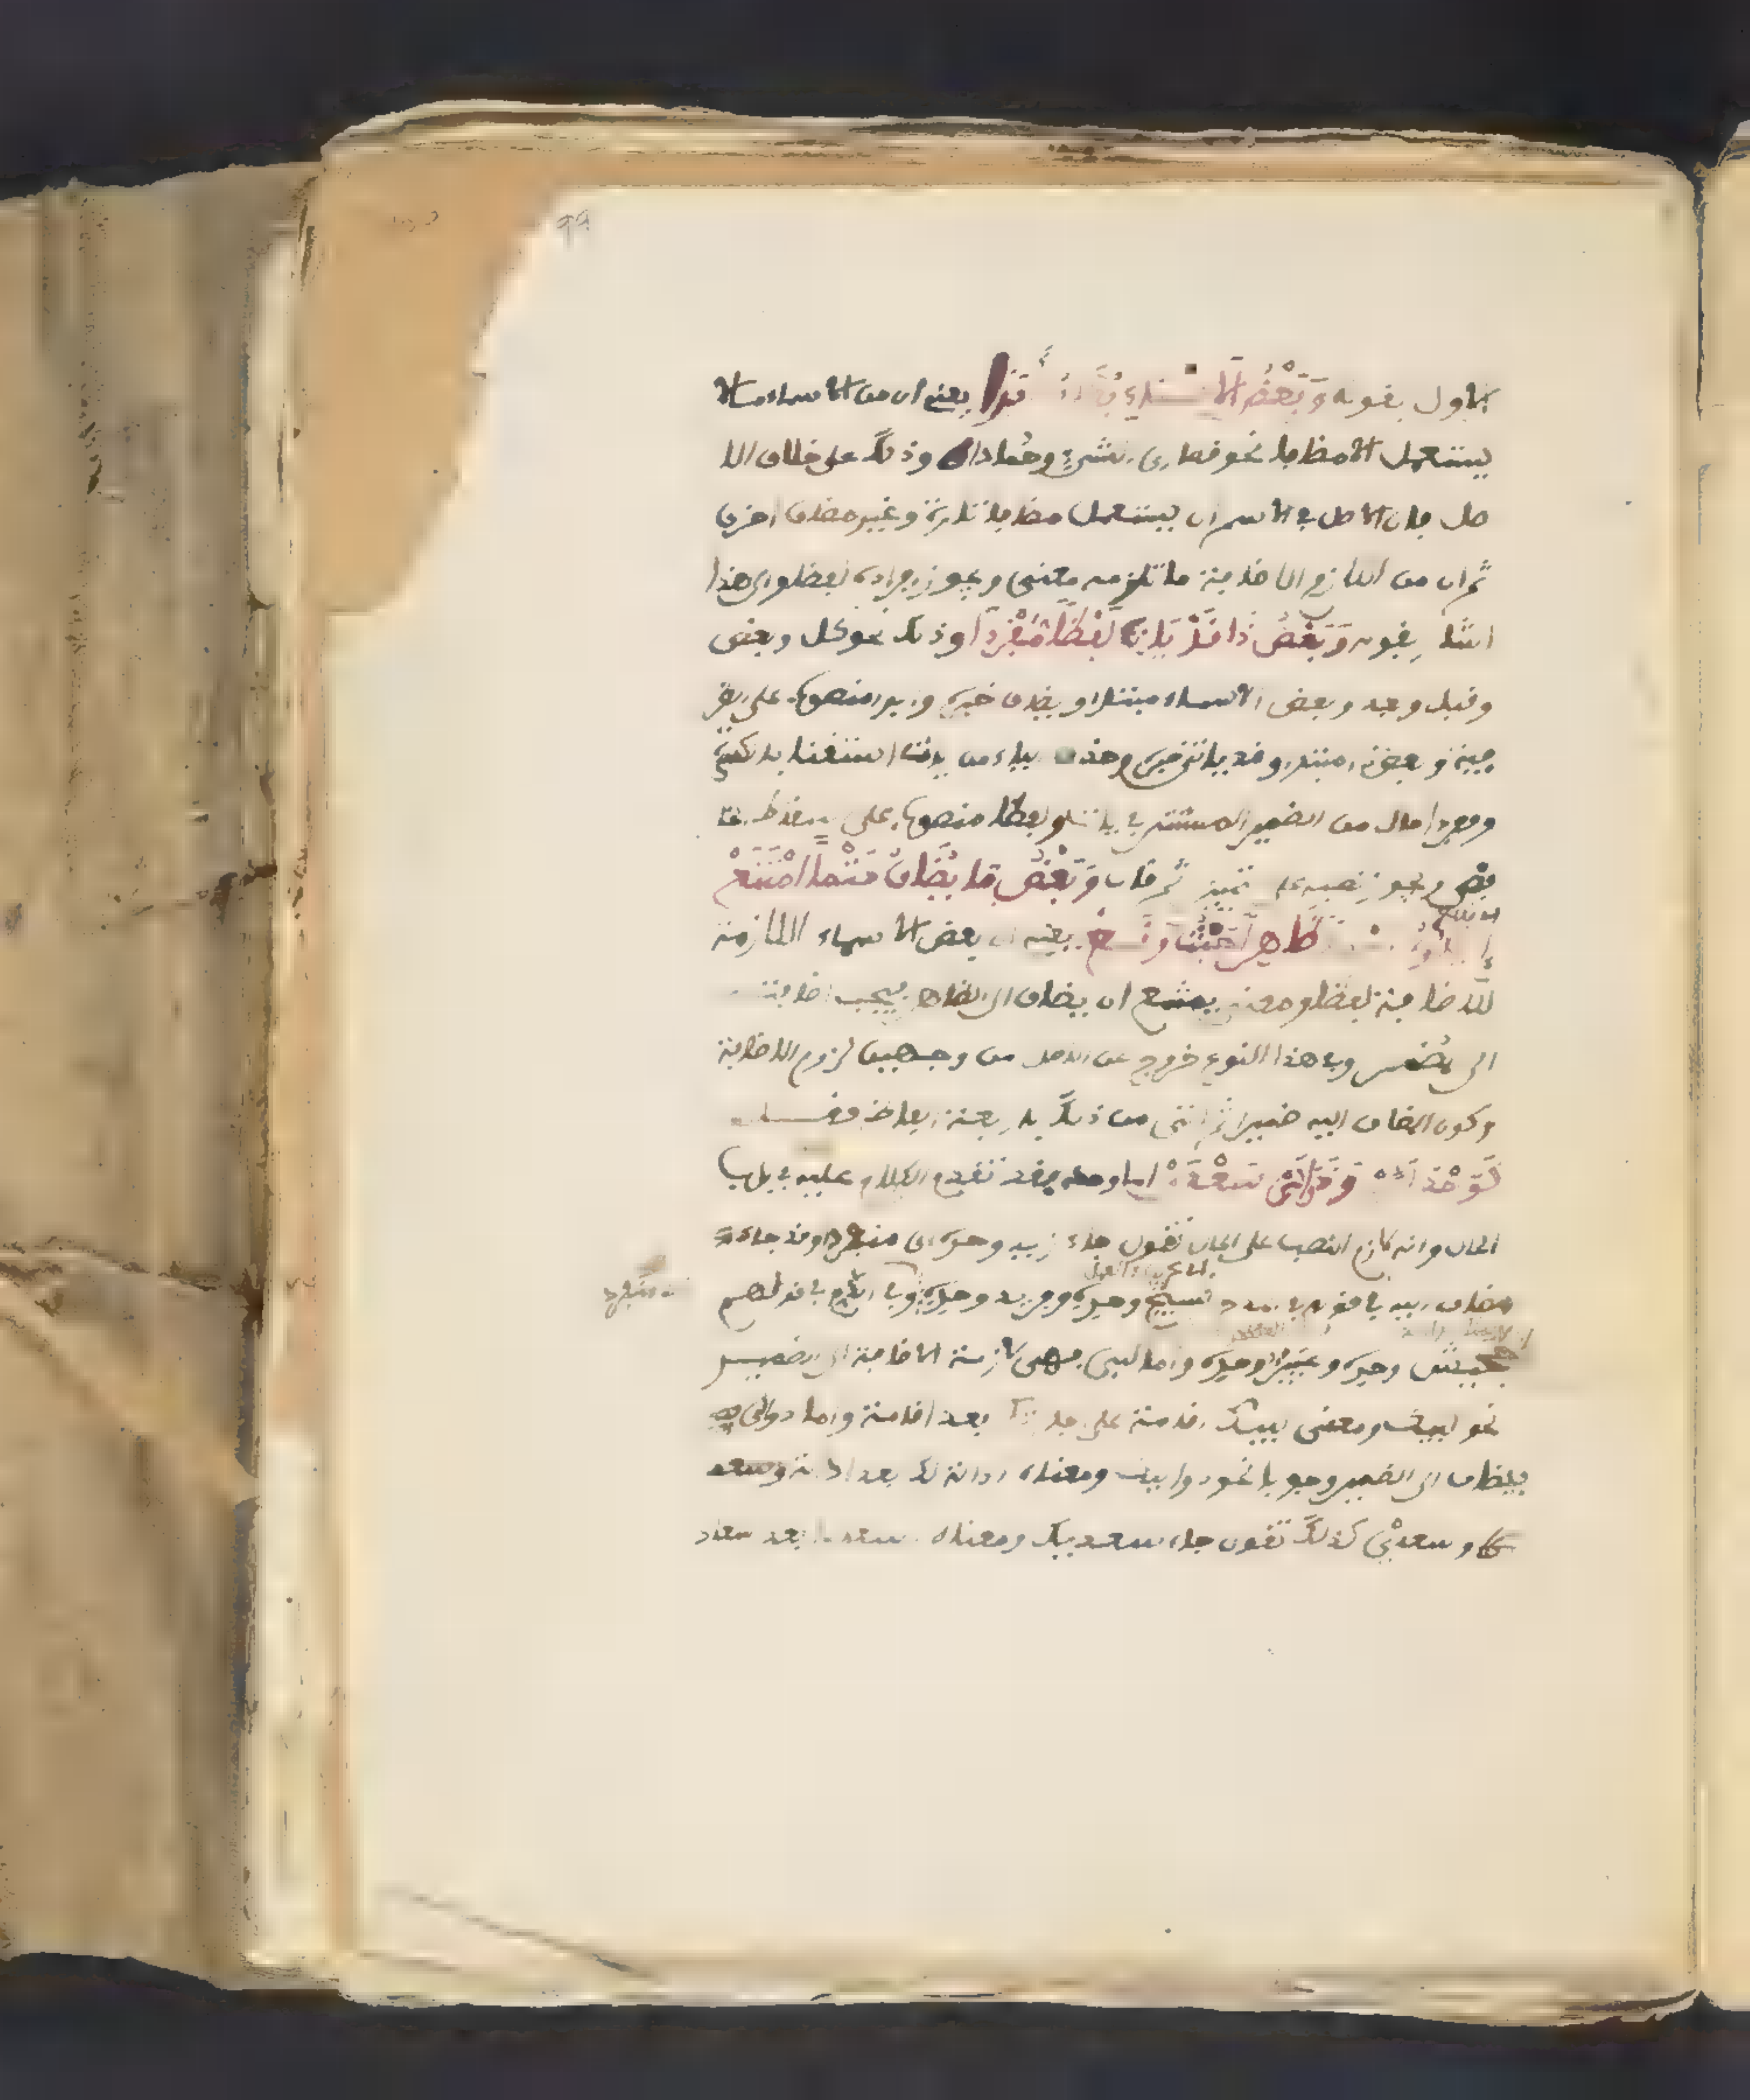 الاول بقوله وَبَعْضُ الاسماء يُضَافُ أَبَدا يعنى ان من الاسماء ما لا
يستعمل الا مضافا نحو قصارى الشىء وحمادا وذلك على خلاف الا
صل فان الاصل فى الاسم ان يستعمل مضافا تارة وغير مضاف اخرى
ثم ان من اللازم الاضافة ما تلزمه معنى ويجوز افراده لفظا والى هذا
اشار بقوله وَبَعْضُ ذَا قَدْ يَاتِ لَفْظًا مُفْرَدَا وذلك نحو كل وبعض
وقبل وبعد وبعض الاسماء مبتدا ويضاف خبره وابدا منصوب على الظر
فية وبعض ذا مبتدا وقد يات خبره وحذف الياء من ياتى استغنا بالكسرة
ومفردا حال من الضمير المستتر فى يات ولفظا منصوب على اسقاط الخا
فض ويجوز نصبه على تمييز ثم قال وَبَعْضُ مَا يُضَافُ حَتْمًا امْتَنَعْ
إيلاؤه اسما ظَاهِرًا حَيْثُ وَقَعْ يعنى ان بعض الاسماء اللازمة
للاضافة لفظا ومعنى يمتنع ان يضاف الى الظاهر فيجب اضافته
الى مضمر وفى هذا النوع خروج عن الاصل من وجهين لزوم الاضافة
وكون المضاف اليه ضميرا ثم اتى من ذلك باربعة الفاظ فقال
كَوَحْدَ لبى وَدَوَالَىْ سَعْدَىْ اما وحد فقد تقدم الكلام عليه فى باب
الحال وانه لازم النصب على الحال تقول جاء زيد وحده اى منفردا وقد جاء
مضاف اليه فى قولهم فى المدح نسيج وحده وقريع وحده وفى الذم فى قولهم
جحيش وحده وعيير وحده واما لبى فهى لازمة الاضافة الى الضمير
نحو لبيك ومعنى لبيك اقامة على اجابتك بعد اقامة واما دوالى
فيضاف الى الضمير وجوبا نحو دواليك ومعناه ادالة لك بعد ادالة
وسعدى كذلك تقول جاء سعديك ومعناه سعدا بعد سعاد